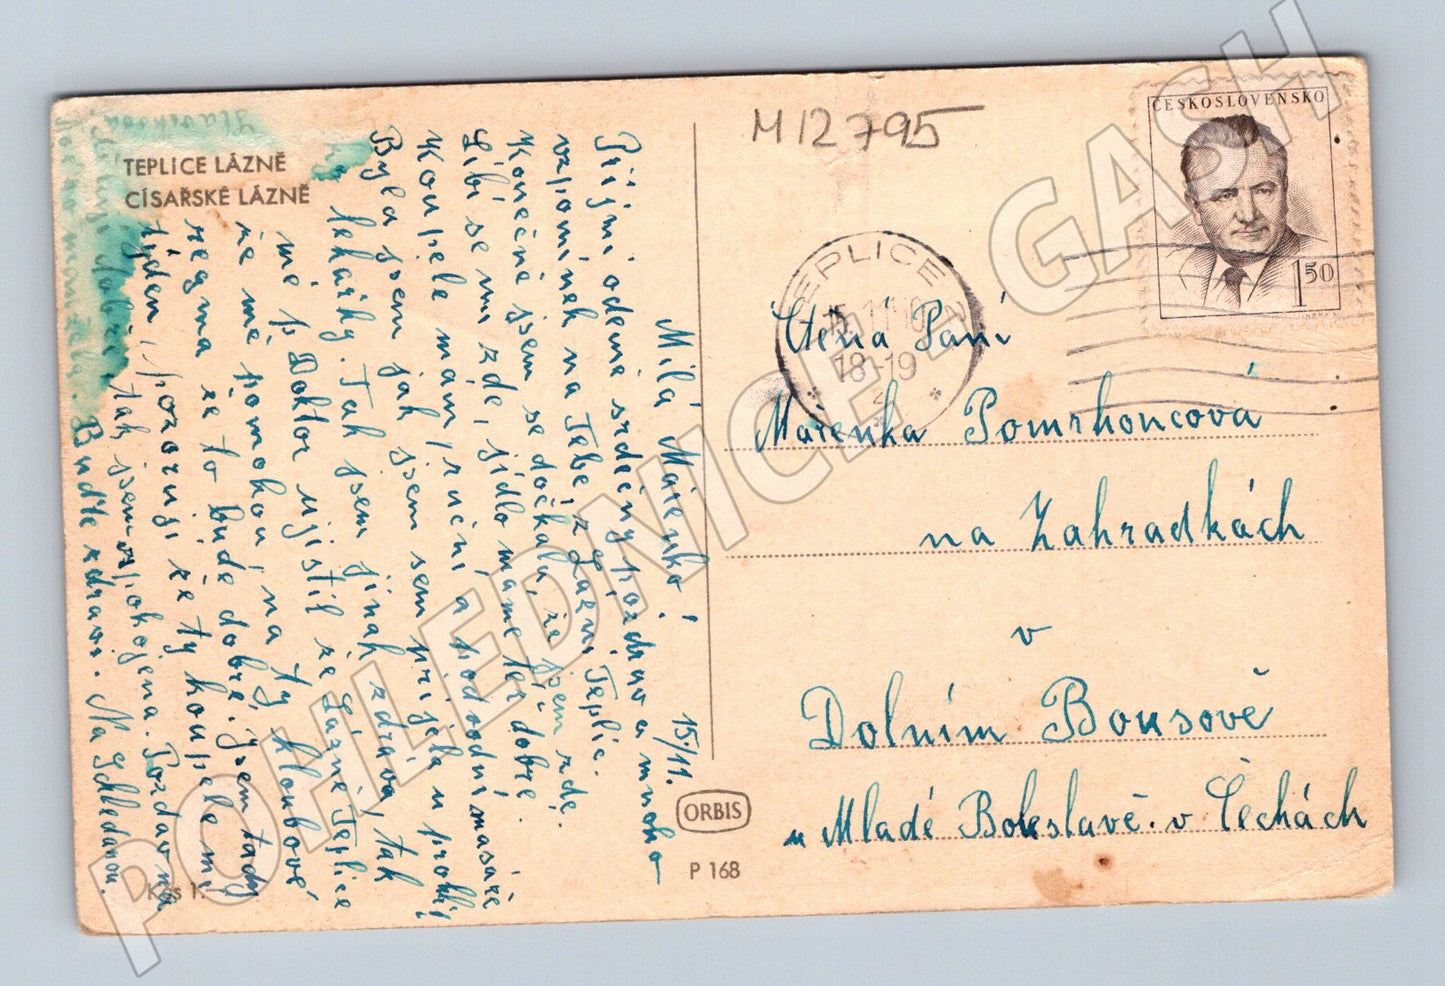 TEPLICE LÁZNĚ
CÍSAŘSKÉ LÁZNĚ
M12795
ČESKOSLOVENSKO
1 50
TEPLICE
18-19
15/11.
Milá Mařenko!
Přijmi ode mě srdečný pozdrav a mnoho
vzpomínek na Tebe, z Lázní Teplic.
Konečně jsem se dočkala, že jsem zde.
Líbí se mi zde, jídlo máme též dobré.
Koupele mám, ruční a podvodní masáže
Byla jsem jak jsem sem přijela u prohlí,
lékařky. Tak jsem jinak zdráva, tak
mě p. Doktor ujistil že Lázně Teplice
že mě pomohou, na ty kloubové
regma že to bude dobré. jsem tady
týden, pozoruji že ty koupele mi
dobře tak jsem spokojena. Pozdav na
Buďte zdrávi. Na shledanou.
Ctěná Paní
Mařenka Pomrhoncová
na Zahradkách
v
Dolním Bousově
u Mladé Boleslavě. v Čechách
ORBIS
P 168
Kčs 1.
POHLEDNICE GASH